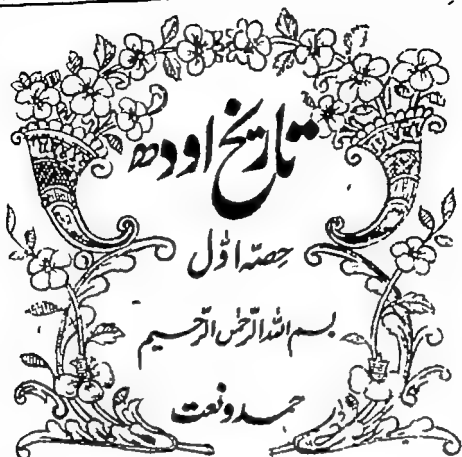 تاریخ اودھ
حصّہ اوّل
بسم اللہ الرّحمٰن الرّحیم
حمد و نعت